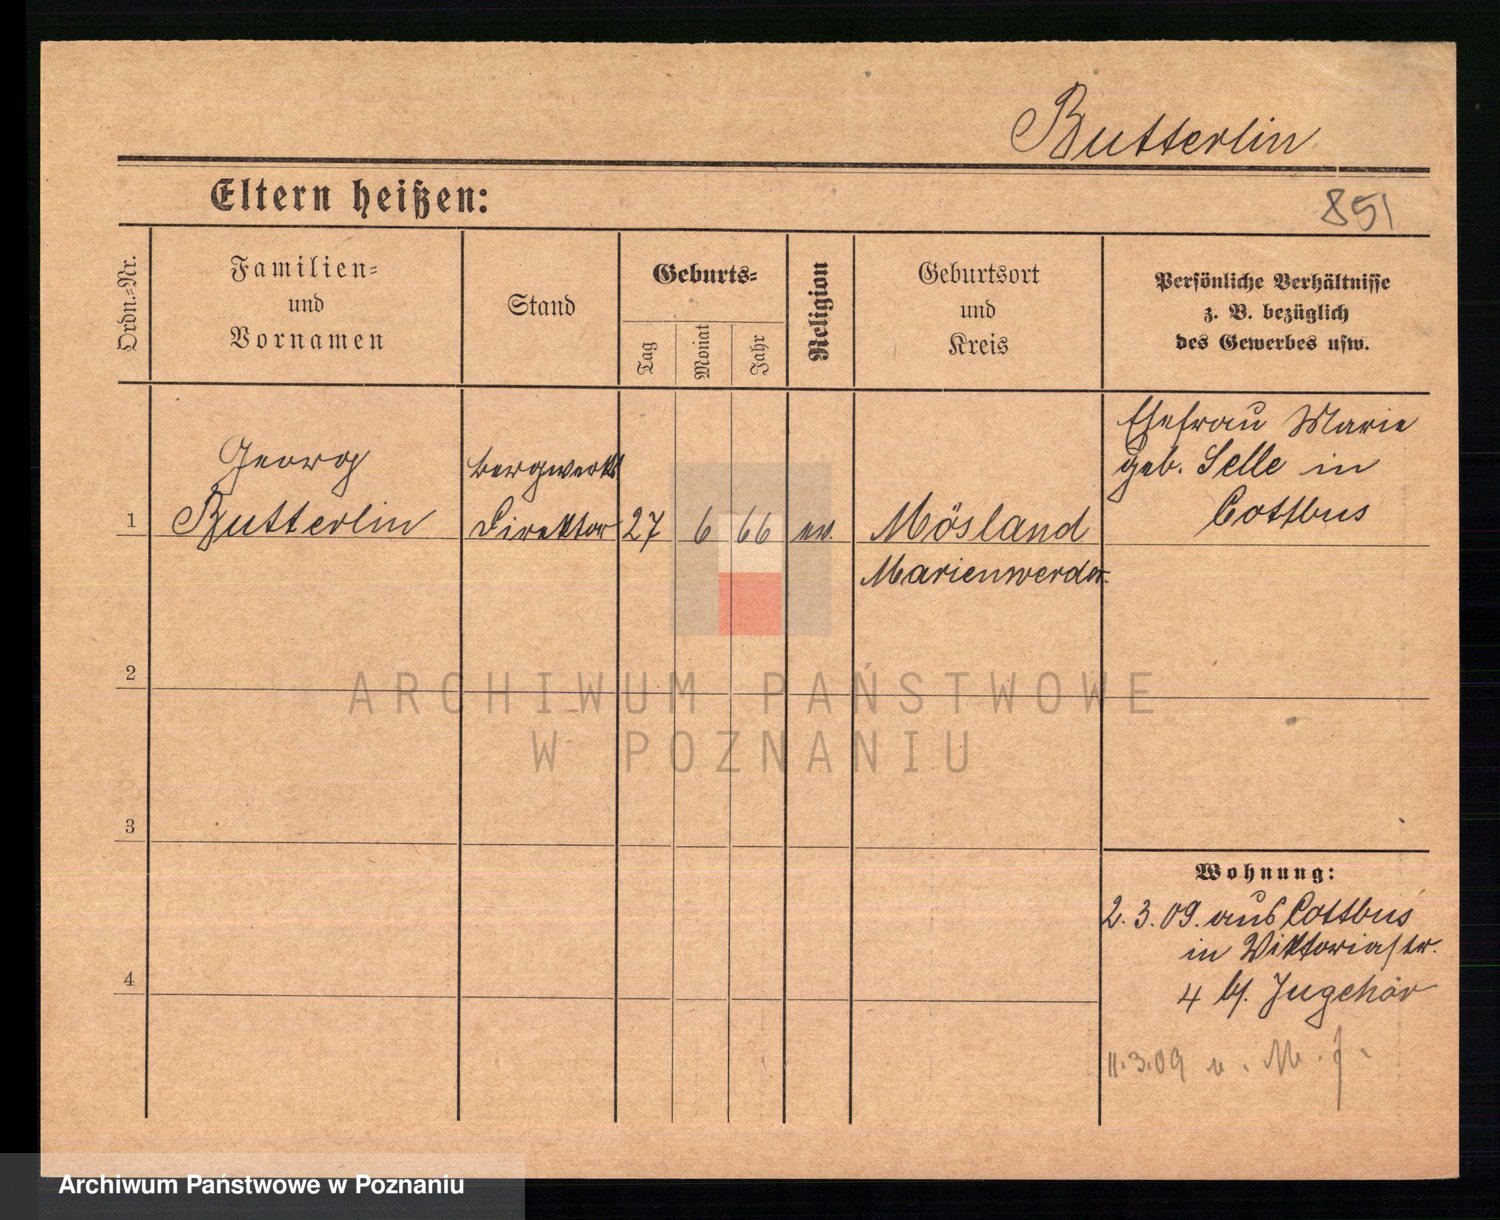 Butterlin
Eltern heißen:
851
Ordn.-Nr.
Familien-
und
Vornamen
Stand
Geburts-
Tag
Monat
Jahr
Religion
Geburtsort
und
Kreis
Persönliche Verhältnisse
z. B. bezüglich
des Gewerbes usw.
1
Georg
Butterlin
Bergwerks
Direktor
27
6
66
ev.
Mösland
Marienwerder.
Ehefrau Marie
geb. Selle in
Cottbus
2
3
4
Wohnung:
2.3.09. aus Cottbus
in Viktoriastr.
4 b/. Jugehör
11.3.09 n. M. J.
ARCHIWUM PAŃSTWOWE
W POZNANIU
Archiwum Państwowe w Poznaniu